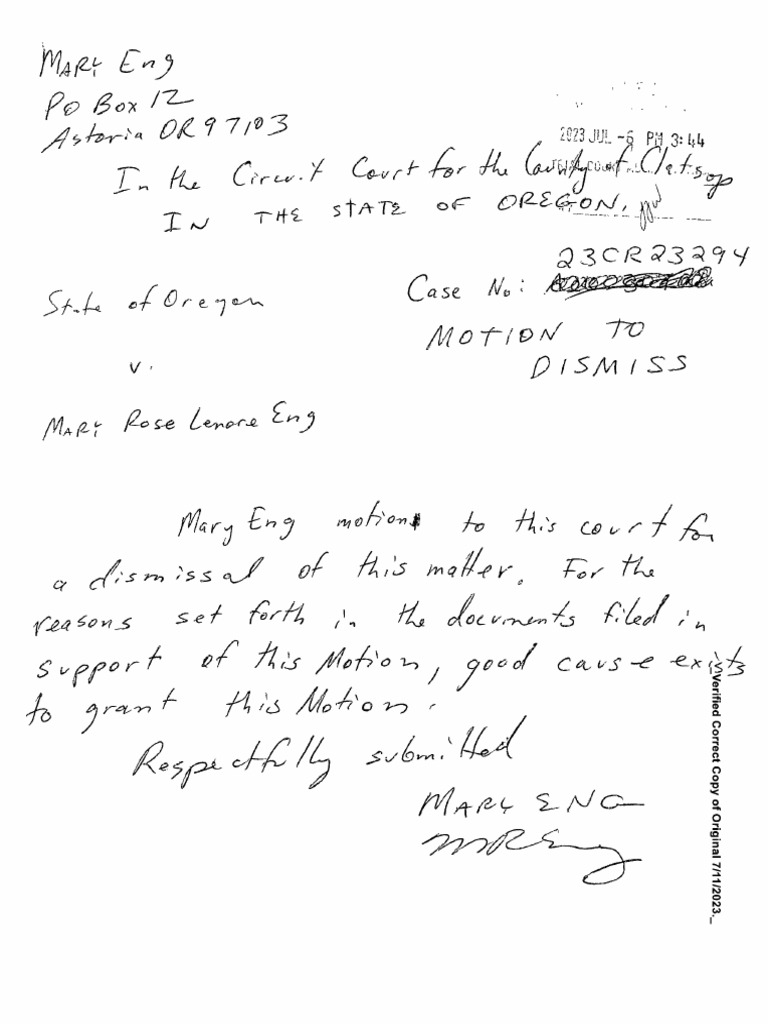 Mary Eng
PO Box 12
Astoria OR 97103
2023 JUL -6 PM 3:44
In the Circuit Court for the County of Clatsop
IN THE STATE OF OREGON.
23CR23294
State of Oregon
Case No:
MOTION TO
DISMISS
v.
Mary Rose Lenore Eng
Mary Eng motion to this court for
a dismissal of this matter. For the
reasons set forth in the documents filed in
support of this Motion, good cause exists
to grant this Motion.
Respectfully submitted
MARY ENG
MREng
Verified Correct Copy of Original 7/11/2023._